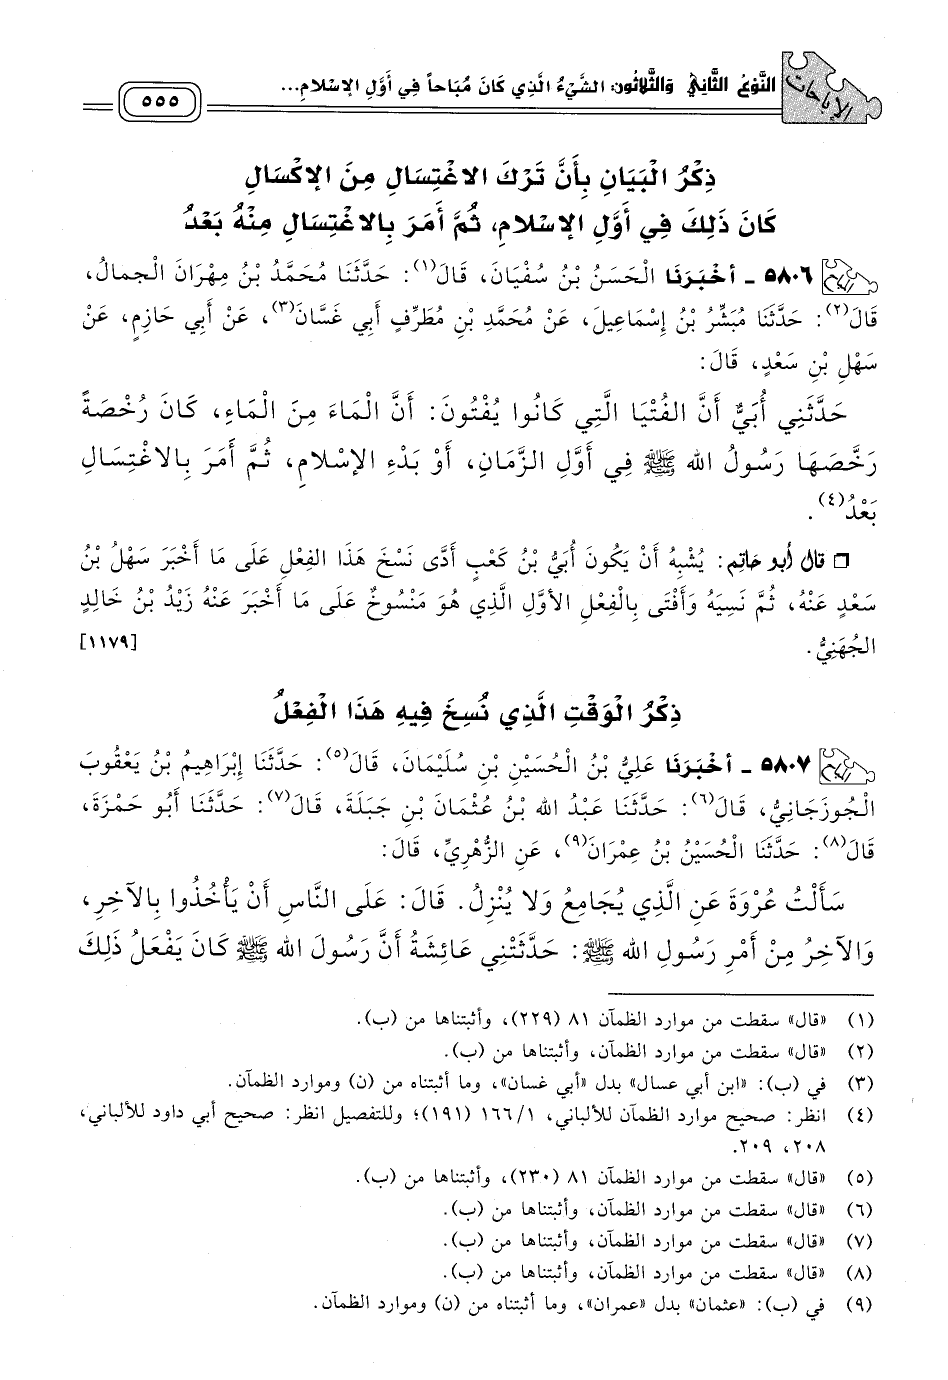 الإباحات
النَّوْعُ الثَّانِي وَالثَّلاثُون: الشَّيْءُ الَّذِي كَانَ مُبَاحاً فِي أَوَّلِ الإسْلامِ...
٥٥٥
ذِكْرُ الْبَيَانِ بِأَنَّ تَرْكَ الاغْتِسَالِ مِنَ الإكْسَالِ
كَانَ ذَلِكَ فِي أَوَّلِ الإسْلامِ، ثُمَّ أَمَرَ بِالاغْتِسَالِ مِنْهُ بَعْدُ
٥٨٠٦ - أخْبَرَنَا الْحَسَنُ بْنُ سُفْيَانَ، قَالَ(١): حَدَّثَنَا مُحَمَّدُ بْنُ مِهْرَانَ الْجمالُ،
قَالَ(٢): حَدَّثَنَا مُبَشِّرُ بْنُ إسْمَاعِيلَ، عَنْ مُحَمَّدِ بْنِ مُطَرِّفٍ أبِي غَسَّانَ(٣)، عَنْ أَبِي حَازِمٍ، عَنْ
سَهْلِ بْنِ سَعْدٍ، قَالَ:
حَدَّثَنِي أُبَيٌّ أَنَّ الفُتْيَا الَّتِي كَانُوا يُفْتُونَ: أَنَّ الْمَاءَ مِنَ الْمَاءِ، كَانَ رُخْصَةً
رَخَّصَهَا رَسُولُ الله ﷺ فِي أَوَّلِ الزَّمَانِ، أَوْ بَدْءِ الإسْلامِ، ثُمَّ أَمَرَ بِالاغْتِسَالِ
بَعْدُ(٤).
❑ قال أبو حاتم: يُشْبِهُ أَنْ يَكُونَ أُبَيُّ بْنُ كَعْبٍ أَدَّى نَسْخَ هَذَا الفِعْلِ عَلَى مَا أَخْبَرَ سَهْلُ بْنُ
سَعْدٍ عَنْهُ، ثُمَّ نَسِيَهُ وَأَفْتَى بِالْفِعْلِ الأَوَّلِ الَّذِي هُوَ مَنْسُوخٌ عَلَى مَا أَخْبَرَ عَنْهُ زَيْدُ بْنُ خَالِدٍ
الجُهَنِيُّ. [١١٧٩]
ذِكْرُ الْوَقْتِ الَّذِي نُسِخَ فِيهِ هَذَا الْفِعْلُ
٥٨٠٧ - أخْبَرَنَا عَلِيُّ بْنُ الْحُسَيْنِ بْنِ سُلَيْمَانَ، قَالَ(٥): حَدَّثَنَا إبْرَاهِيمُ بْنُ يَعْقُوبَ
الْجُوزَجَانِيُّ، قَالَ(٦): حَدَّثَنَا عَبْدُ الله بْنُ عُثْمَانَ بْنِ جَبَلَةَ، قَالَ(٧): حَدَّثَنَا أَبُو حَمْزَةَ،
قَالَ(٨): حَدَّثَنَا الْحُسَيْنُ بْنُ عِمْرَانَ(٩)، عَنِ الزُّهْرِيِّ، قَالَ:
سَأَلْتُ عُرْوَةَ عَنِ الَّذِي يُجَامِعُ وَلا يُنْزِلُ. قَالَ: عَلَى النَّاسِ أَنْ يَأْخُذُوا بِالآخِرِ،
وَالآخِرُ مِنْ أَمْرِ رَسُولِ الله ﷺ: حَدَّثَتْنِي عَائِشَةُ أَنَّ رَسُولَ الله ﷺ كَانَ يَفْعَلُ ذَلِكَ
(١) «قال» سقطت من موارد الظمآن ٨١ (٢٢٩)، وأثبتناها من (ب).
(٢) «قال» سقطت من موارد الظمآن، وأثبتناها من (ب).
(٣) في (ب): «ابن أبي عسال» بدل «أبي غسان»، وما أثبتناه من (ن) وموارد الظمآن.
(٤) انظر: صحيح موارد الظمآن للألباني، ١/١٦٦ (١٩١)؛ وللتفصيل انظر: صحيح أبي داود للألباني،
٢٠٨، ٢٠٩.
(٥) «قال» سقطت من موارد الظمآن ٨١ (٢٣٠)، وأثبتناها من (ب).
(٦) «قال» سقطت من موارد الظمآن، وأثبتناها من (ب).
(٧) «قال» سقطت من موارد الظمآن، وأثبتناها من (ب).
(٨) «قال» سقطت من موارد الظمآن، وأثبتناها من (ب).
(٩) في (ب): «عثمان» بدل «عمران»، وما أثبتناه من (ن) وموارد الظمآن.